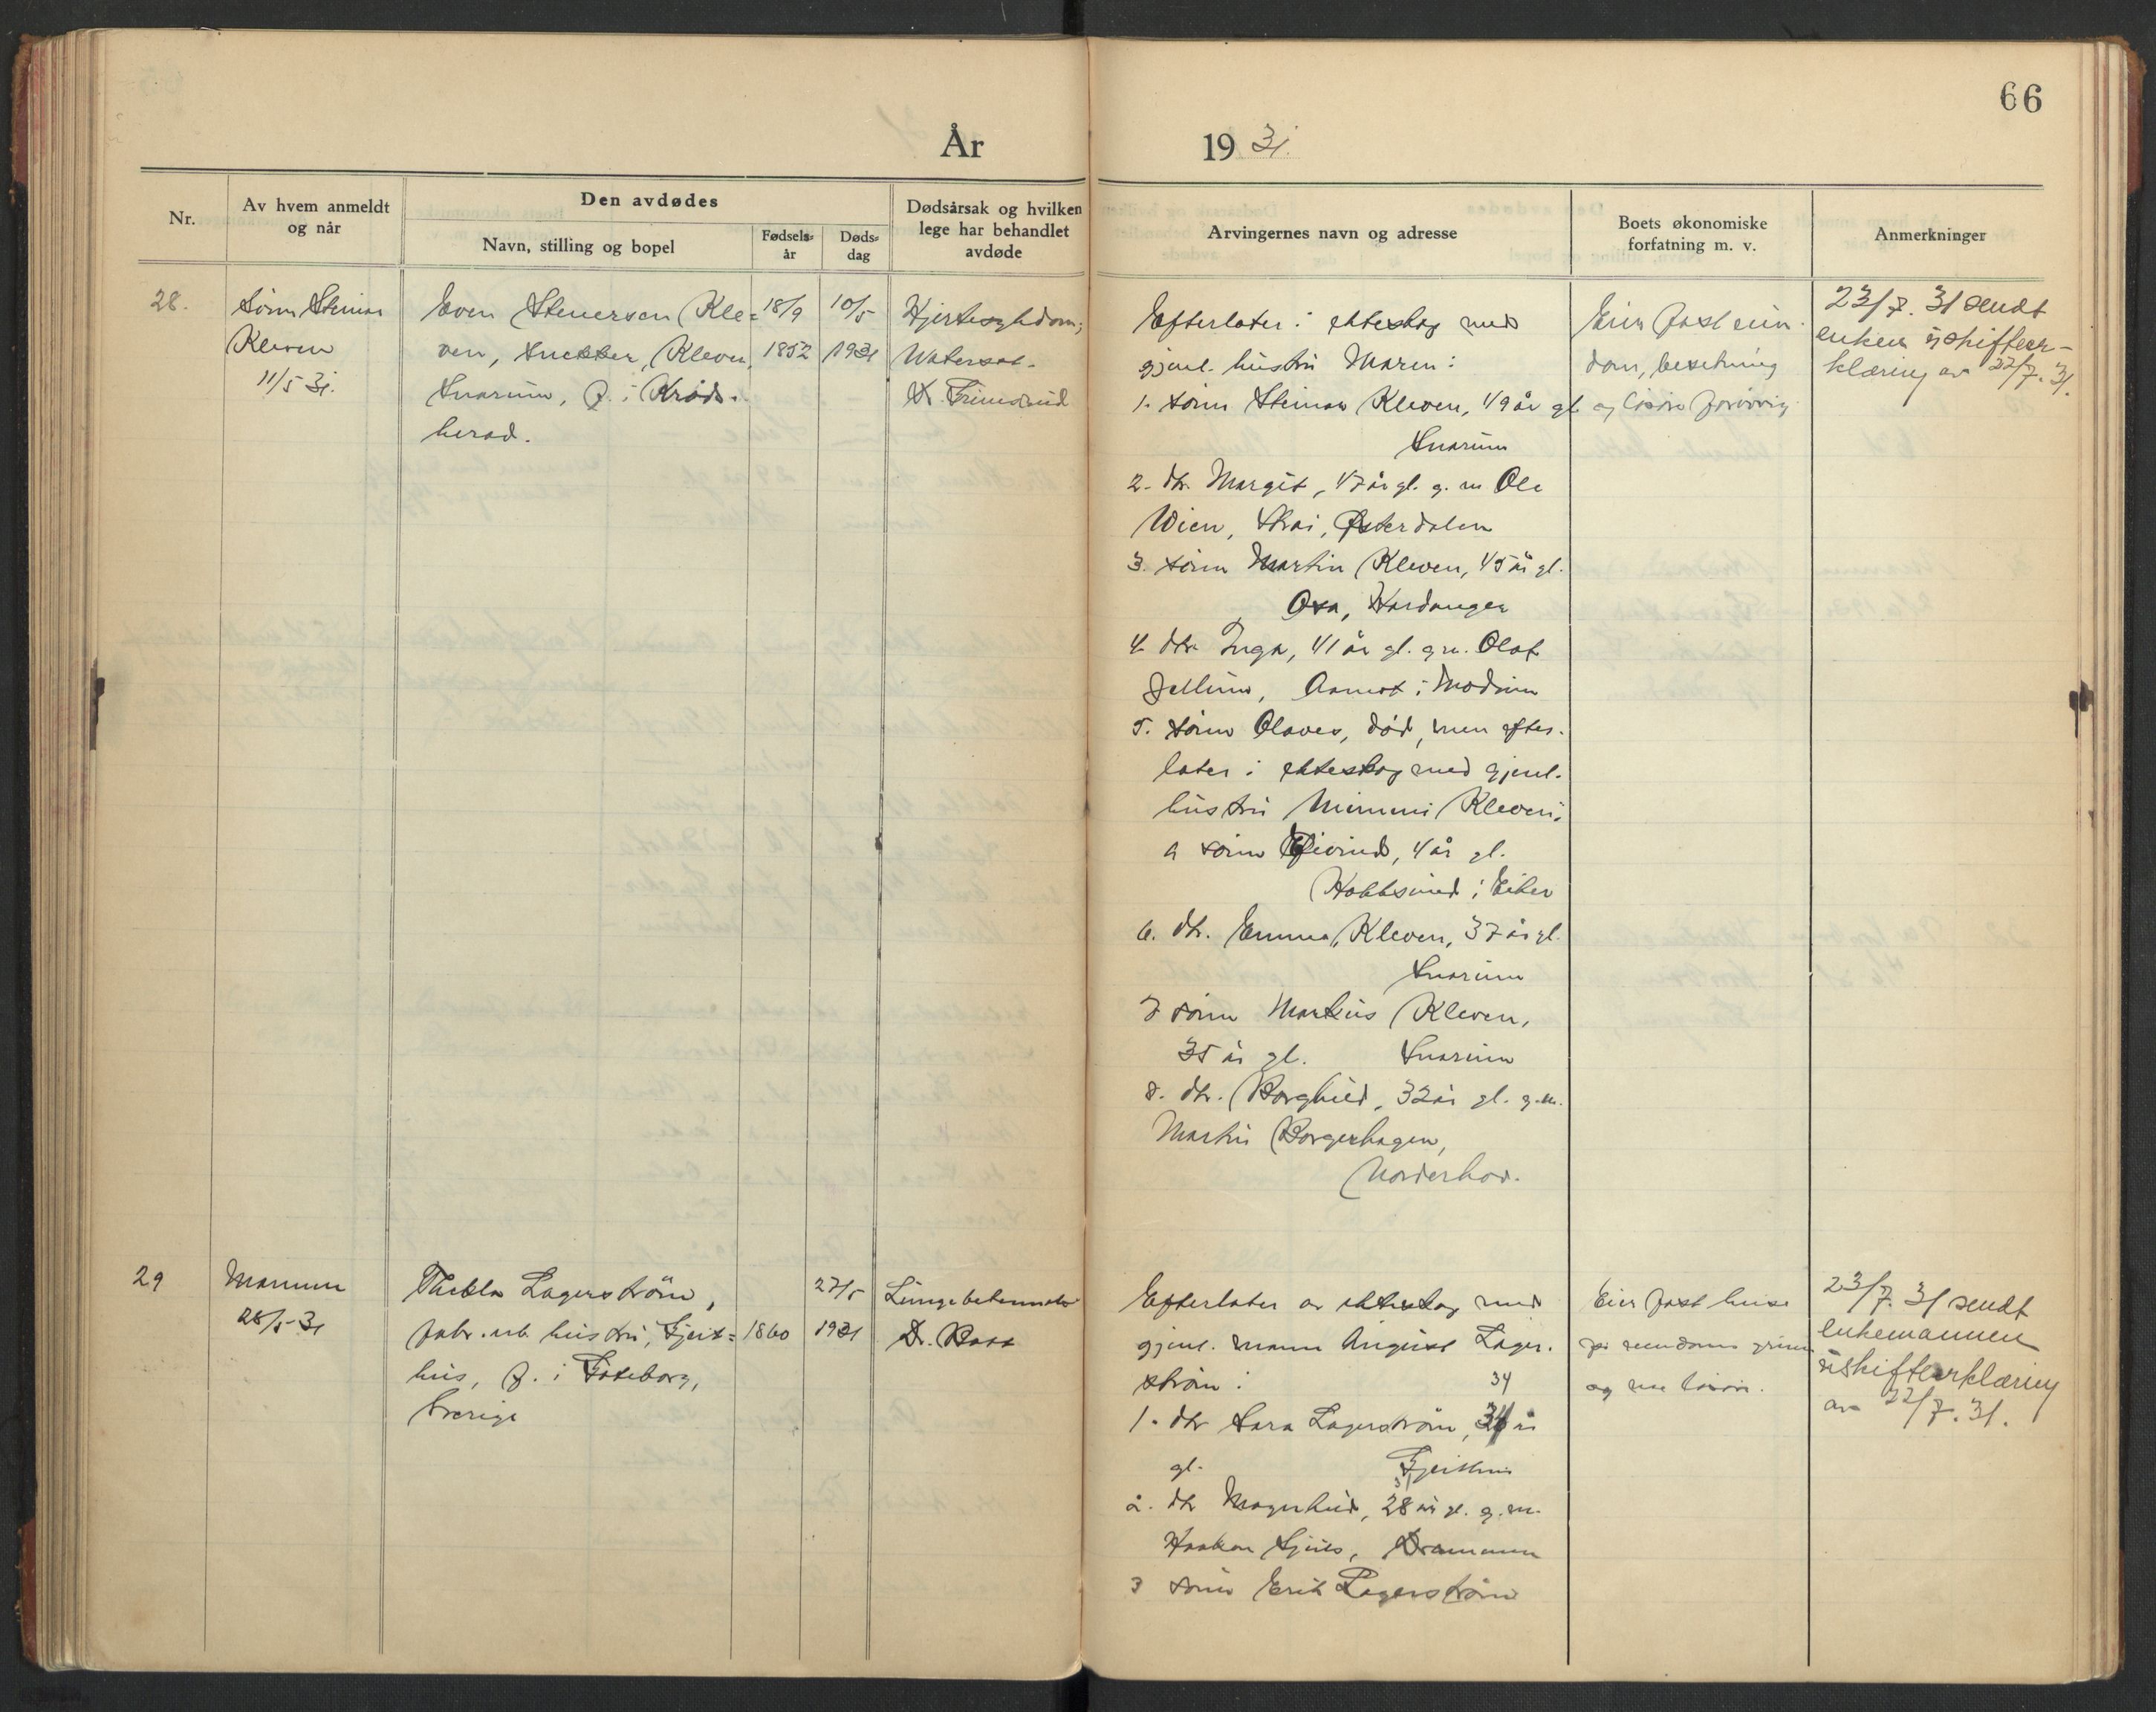 66
År 19 31.
Nr.
Av hvem anmeldt
og når
Den avdødes
Navn, stilling og bopel
Fødsels-
år
Døds-
dag
Dødsårsak og hvilken
lege har behandlet
avdøde
Arvingernes navn og adresse
Boets økonomiske
forfatning m. v.
Anmerkninger
28.
Sønn Steinar
Kleven
11/5 31.
Even Stenersen Kle-
ven, snekker, Kleven,
Snarum, f. i Krøds-
herad.
18/9
1852
10/5
1931
Hjertesykdom;
Watersot.
Dr.
Efterlater i ekteskap med
gjenl. hustru Maren:
1. sønn Steinar Kleven, 49 år gl.
Snarum
2. dtr. Margit, 47 år gl. g. m. Ole
Wien, Østerdalen
3. sønn Martin Kleven, 45 år gl.
Osa, Hardanger
4. dtr. Inga, 41 år gl. g.m. Olaf
Jellum, Aamot i Modum
5. sønn Olaves, død, men efter-
later i ekteskap med gjenl.
hustru Mimmi Kleven:
a sønn Eivind, 4 år gl.
Hokksund i Eiker
6. dtr. Emma Kleven, 37 år gl.
Snarum
7 sønn Markus Kleven,
35 år gl. Snarum
8. dtr. Borghild, 32 år gl. g.m.
Martin Borgerhagen,
Norderhov.
Eier fast eien-
dom, besetning
og løsøre forøvrig
23/7. 31 sendt
enken uskifteer-
klæring av 22/7. 31.
29
Mannen
28/5-31
Thekla Lagerström,
fabr. arb. hustru, Gjeit-
hus, f. i Göteborg,
Sverige
1860
27/5
1931
Lungebetennelse
Dr.
Efterlater av ekteskap med
gjenl. mann August Lager-
ström:
34
1. dtr Sara Lagerström, år
gl. Gjeithus
31
2. dtr Magnhild, 28 år gl. g. m.
Haakon Drammen
3 sønn Erik Lagerström
Eier fast huse
på eiendoms grunn
og noe løsøre.
23/7. 31 sendt
enkemannen
uskifteerklæring
av 22/7. 31.